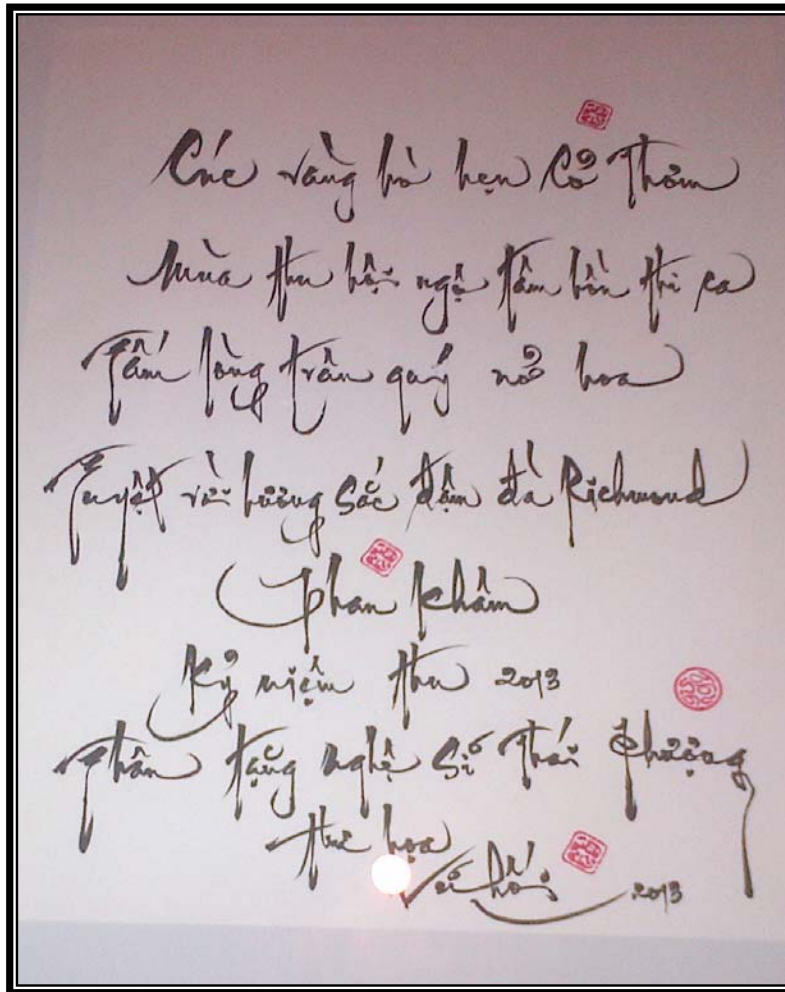 Cúc vàng hò hẹn Cỏ Thơm
Mùa thu hội ngộ tâm hồn thi ca
Tấm lòng trân quý nở hoa
Tuyệt vời hương sắc đậm đà Richmond
Phan Khâm
Kỷ niệm thu 2013
Thân tặng nghệ sĩ Thái Phượng
thư họa
Vũ Hối 2013